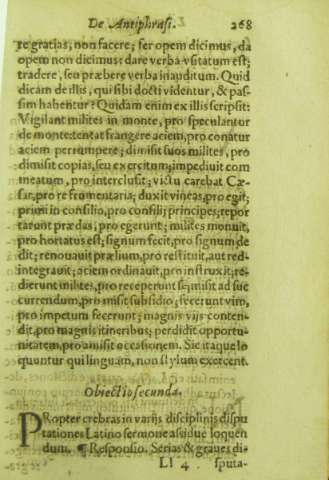 De Antiphrasi. 268
re gratias, non facere; fer opem dicimus, da
opem non dicimus: dare verba vsitatum est;
tradere, seu præbere verba inauditum. Quid
dicam de illis, qui sibi docti videntur, & pas-
sim habentur? Quidam enim ex illis scripsit:
Vigilant milites in monte, pro speculantur
de monte: tentat frangere aciem, pro conatur
aciem perrumpere; dimisit suos milites, pro
dimisit copias, seu exercitum; impediuit com
meatum, pro interclusit; victu carebat Cæ-
sar, pro re frumentaria; duxit vineas, pro egit;
primi in consilio, pro consilij principes; repor
tarunt prædas, pro egerunt; milites monuit,
pro hortatus est; signum fecit, pro signum de
dit; renouauit prælium, pro restituit, aut red-
integrauit; aciem ordinauit, pro instruxit; re-
dierunt milites, pro receperunt se; misit ad suc
currendum, pro misit subsidio; fecerunt vim,
pro impetum fecerunt; magnis vijs conten-
dit, pro magnis itineribus; perdidit opportu-
nitatem, pro amisit occasionem. Sic itaque lo
quuntur qui linguam, non stylum exercent.
Obiectio secunda.
PRopter crebras in varijs disciplinis dispu
tationes Latino sermone assidue loquen
dum. ¶ Responsio. Serias & graues di-
Ll 4 sputa-